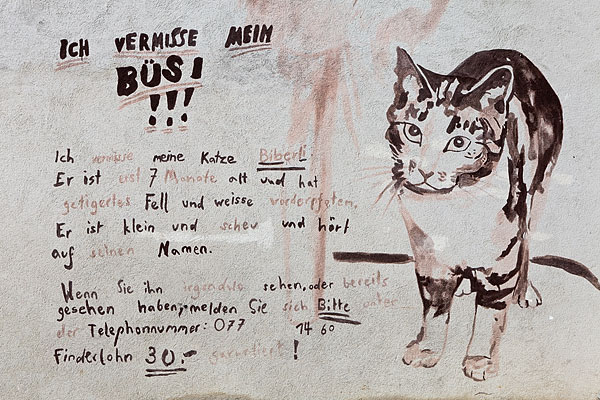 ICH VERMISSE MEIN
BÜSI
!!!
Ich vermisse meine Katze Biberli.
Er ist erst 7 Monate alt und hat
getigertes Fell und weisse vorderpfoten.
Er ist klein und scheu und hört
auf seinen Namen.
Wenn Sie ihn irgendwo sehen, oder bereits
gesehen haben, melden Sie sich Bitte unter
der Telephonnummer: 077 14 60
Finderlohn 30.- garantiert!